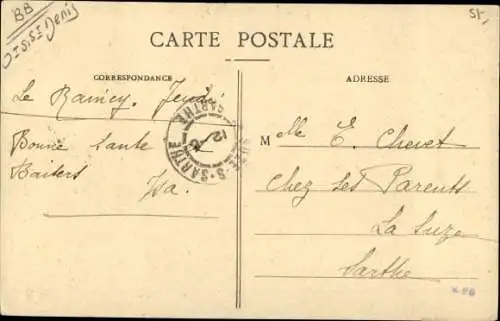 BB
St,
CARTE POSTALE
CORRESPONDANCE
ADRESSE
Le Raincy. Jeudi
Bonne Santé
Baisers
Isa.
SARTHE
Melle E. Chevet
Chez ses Parents
La Suze
Sarthe